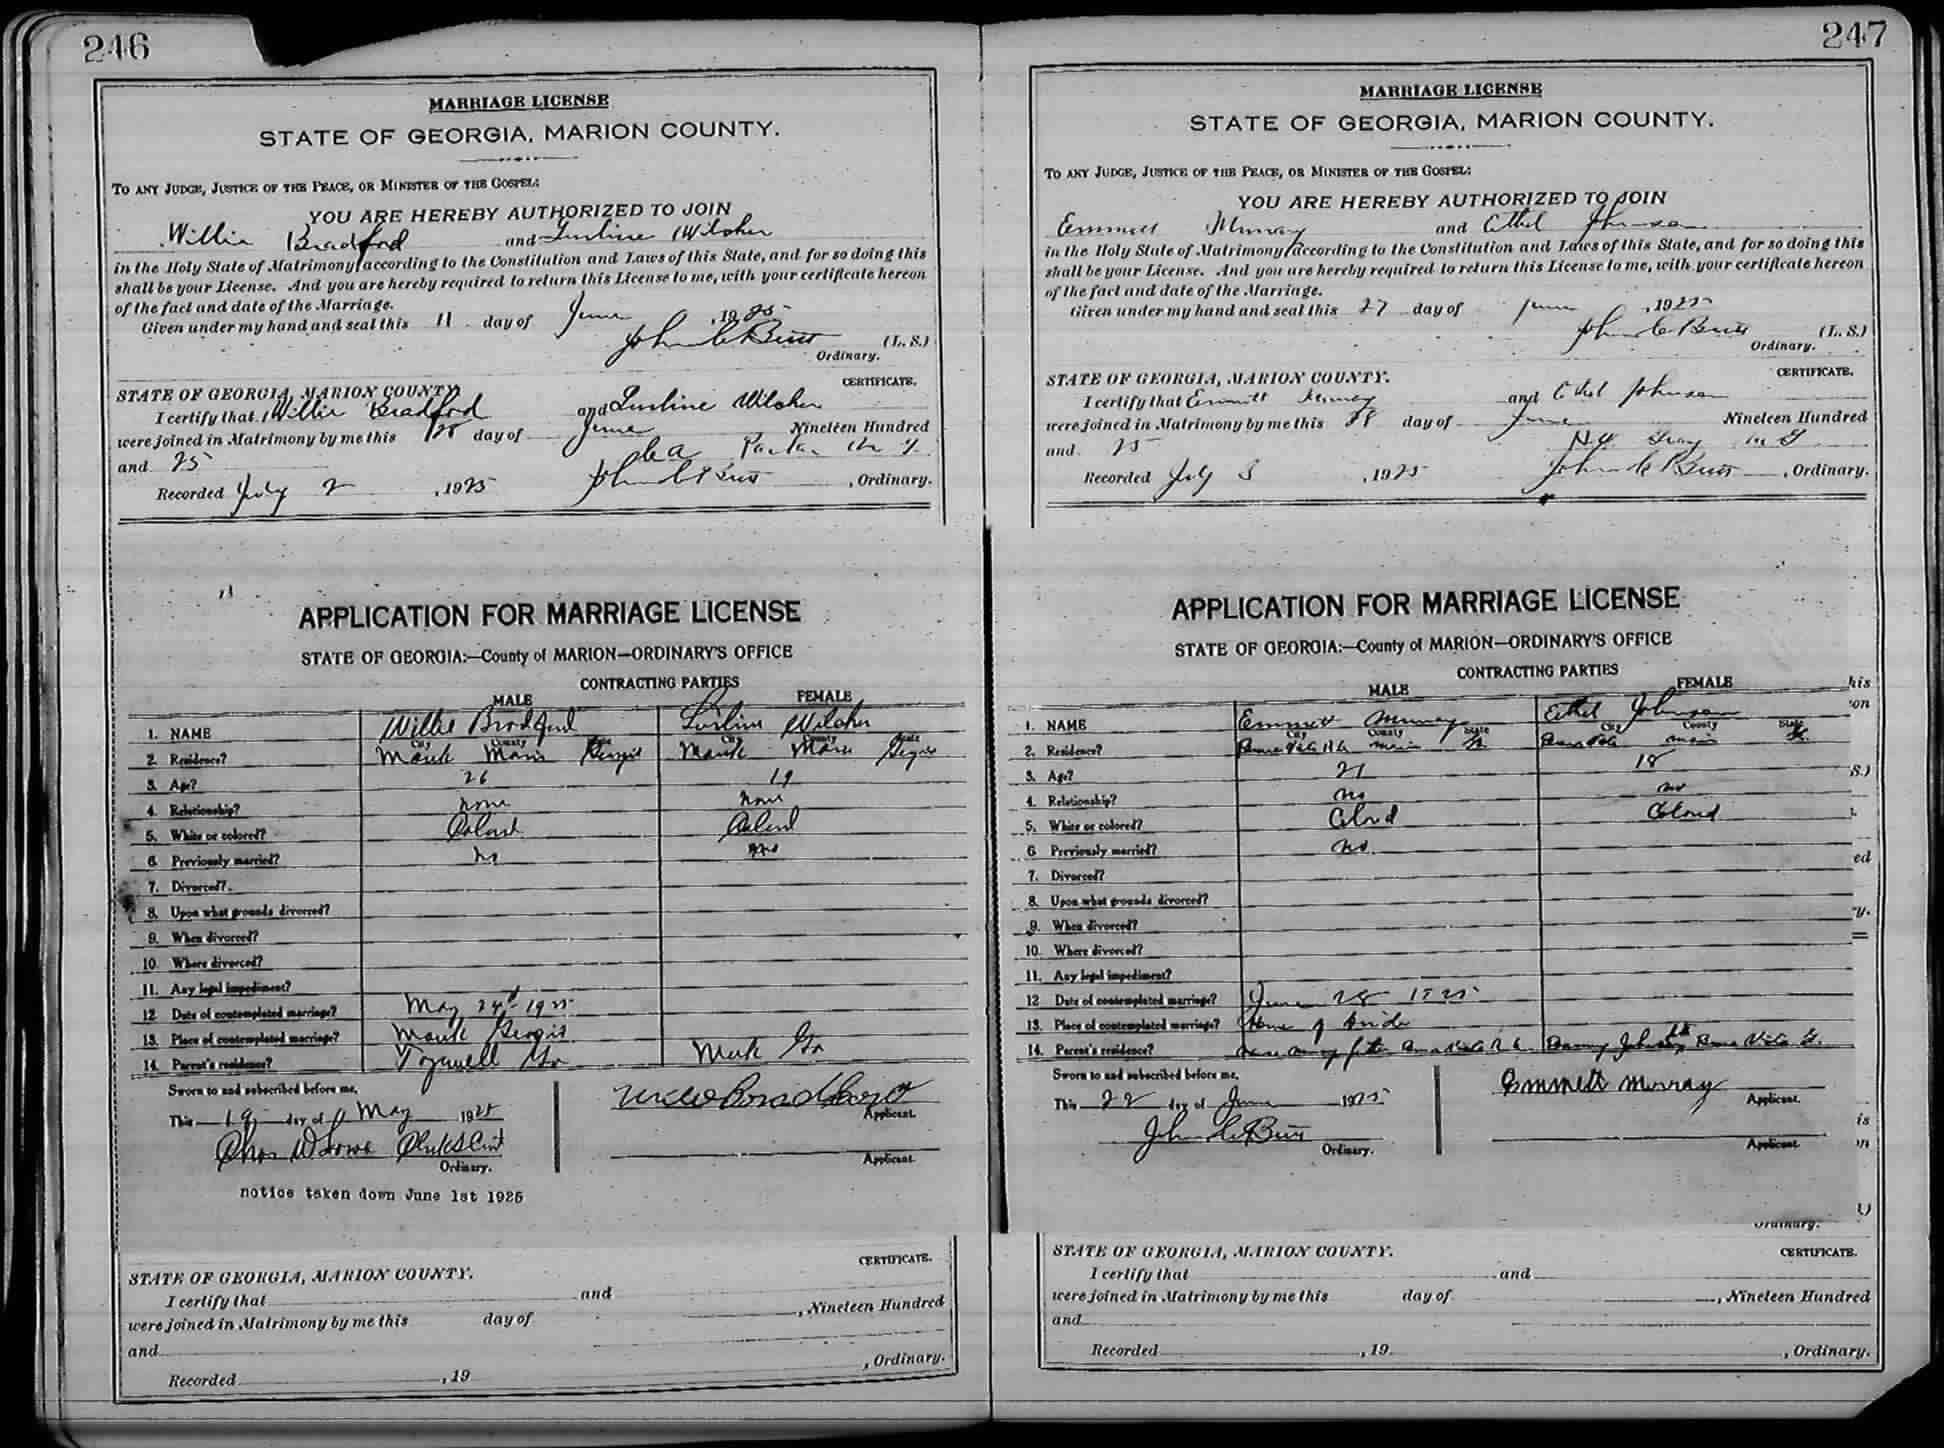 246
MARRIAGE LICENSE
STATE OF GEORGIA, MARION COUNTY.
TO ANY JUDGE, JUSTICE OF THE PEACE, OR MINISTER OF THE GOSPEL:
YOU ARE HEREBY AUTHORIZED TO JOIN
Willie Bradford and Lurline Wilcher
in the Holy State of Matrimony according to the Constitution and Laws of this State, and for so doing this
shall be your License. And you are hereby required to return this License to me, with your certificate hereon
of the fact and date of the Marriage.
Given under my hand and seal this 11 day of June, 1925
John C Butt (L. S.)
Ordinary.
CERTIFICATE.
STATE OF GEORGIA, MARION COUNTY
I certify that Willie Bradford and Lurline Wilcher
were joined in Matrimony by me this day of June Nineteen Hundred
and 25
Recorded July 2, 1925 John C Butt, Ordinary.
APPLICATION FOR MARRIAGE LICENSE
STATE OF GEORGIA:—County of MARION—ORDINARY'S OFFICE
CONTRACTING PARTIES
MALE FEMALE
1. NAME Willie Bradford Lurline Wilcher
City County State City County State
2. Residence? Mauk Marion Georgia Mauk Marion Georgia
3. Age? 26 19
4. Relationship? none none
5. White or colored? Colord Colord
6. Previously married? no no
7. Divorced?
8. Upon what grounds divorced?
9. When divorced?
10. Where divorced?
11. Any legal impediment?
12. Date of contemplated marriage? May 24th 1925
13. Place of contemplated marriage? Mauk Georgia
14. Parent's residence? Ga Mauk Ga
Sworn to and subscribed before me,
This 19 day of May 1925
Applicant.
Ordinary.
Applicant.
notice taken down June 1st 1925
CERTIFICATE.
STATE OF GEORGIA, MARION COUNTY.
I certify that and
were joined in Matrimony by me this day of , Nineteen Hundred
and
Recorded , 19 , Ordinary.
247
MARRIAGE LICENSE
STATE OF GEORGIA, MARION COUNTY.
TO ANY JUDGE, JUSTICE OF THE PEACE, OR MINISTER OF THE GOSPEL:
YOU ARE HEREBY AUTHORIZED TO JOIN
Emmett Murray and Ethel Johnson
in the Holy State of Matrimony according to the Constitution and Laws of this State, and for so doing this
shall be your License. And you are hereby required to return this License to me, with your certificate hereon
of the fact and date of the Marriage.
Given under my hand and seal this 27 day of June, 1925
John C Butt (L. S.)
Ordinary.
CERTIFICATE.
STATE OF GEORGIA, MARION COUNTY.
I certify that Emmett and Ethel Johnson
were joined in Matrimony by me this 28 day of June Nineteen Hundred
and 25 Gray M G
Recorded July 3, 1925 John C Butt, Ordinary.
APPLICATION FOR MARRIAGE LICENSE
STATE OF GEORGIA:—County of MARION—ORDINARY'S OFFICE
CONTRACTING PARTIES
MALE FEMALE
1. NAME Emmett Murray Ethel Johnson
City County State City County State
2. Residence? Buena Vista Marion Ga Buena Vista Marion Ga
3. Age? 21 18
4. Relationship? no no
5. White or colored? Colord Colored
6. Previously married? no
7. Divorced?
8. Upon what grounds divorced?
9. When divorced?
10. Where divorced?
11. Any legal impediment?
12. Date of contemplated marriage? June 28 1925
13. Place of contemplated marriage? Home of bride
14. Parent's residence? Johnson Buena Vista Ga.
Sworn to and subscribed before me,
This 22 day of June 1925
Emmett Murray
Applicant.
John C Butt
Ordinary.
Applicant.
his
on
S.)
ed
y.
is
on
Ordinary.
CERTIFICATE.
STATE OF GEORGIA, MARION COUNTY.
I certify that and
were joined in Matrimony by me this day of , Nineteen Hundred
and
Recorded , 19 , Ordinary.